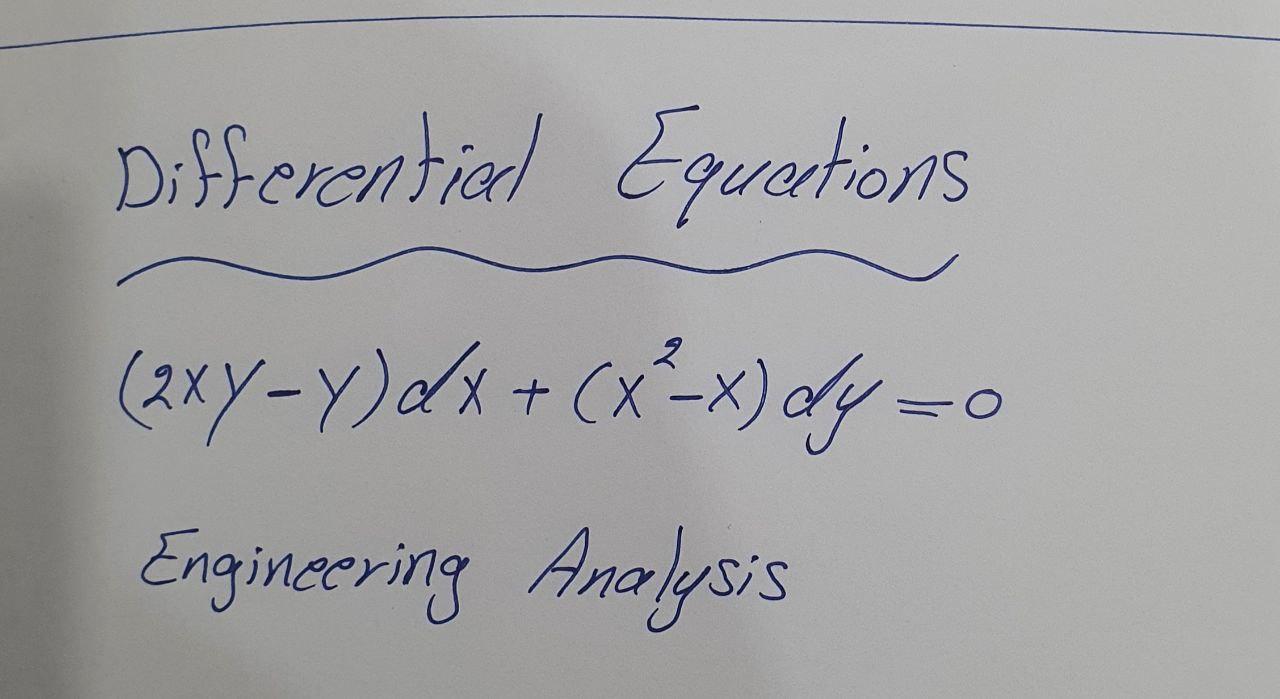 Differential Equations
(2xy-y)dx + (x²-x)dy = 0
Engineering Analysis